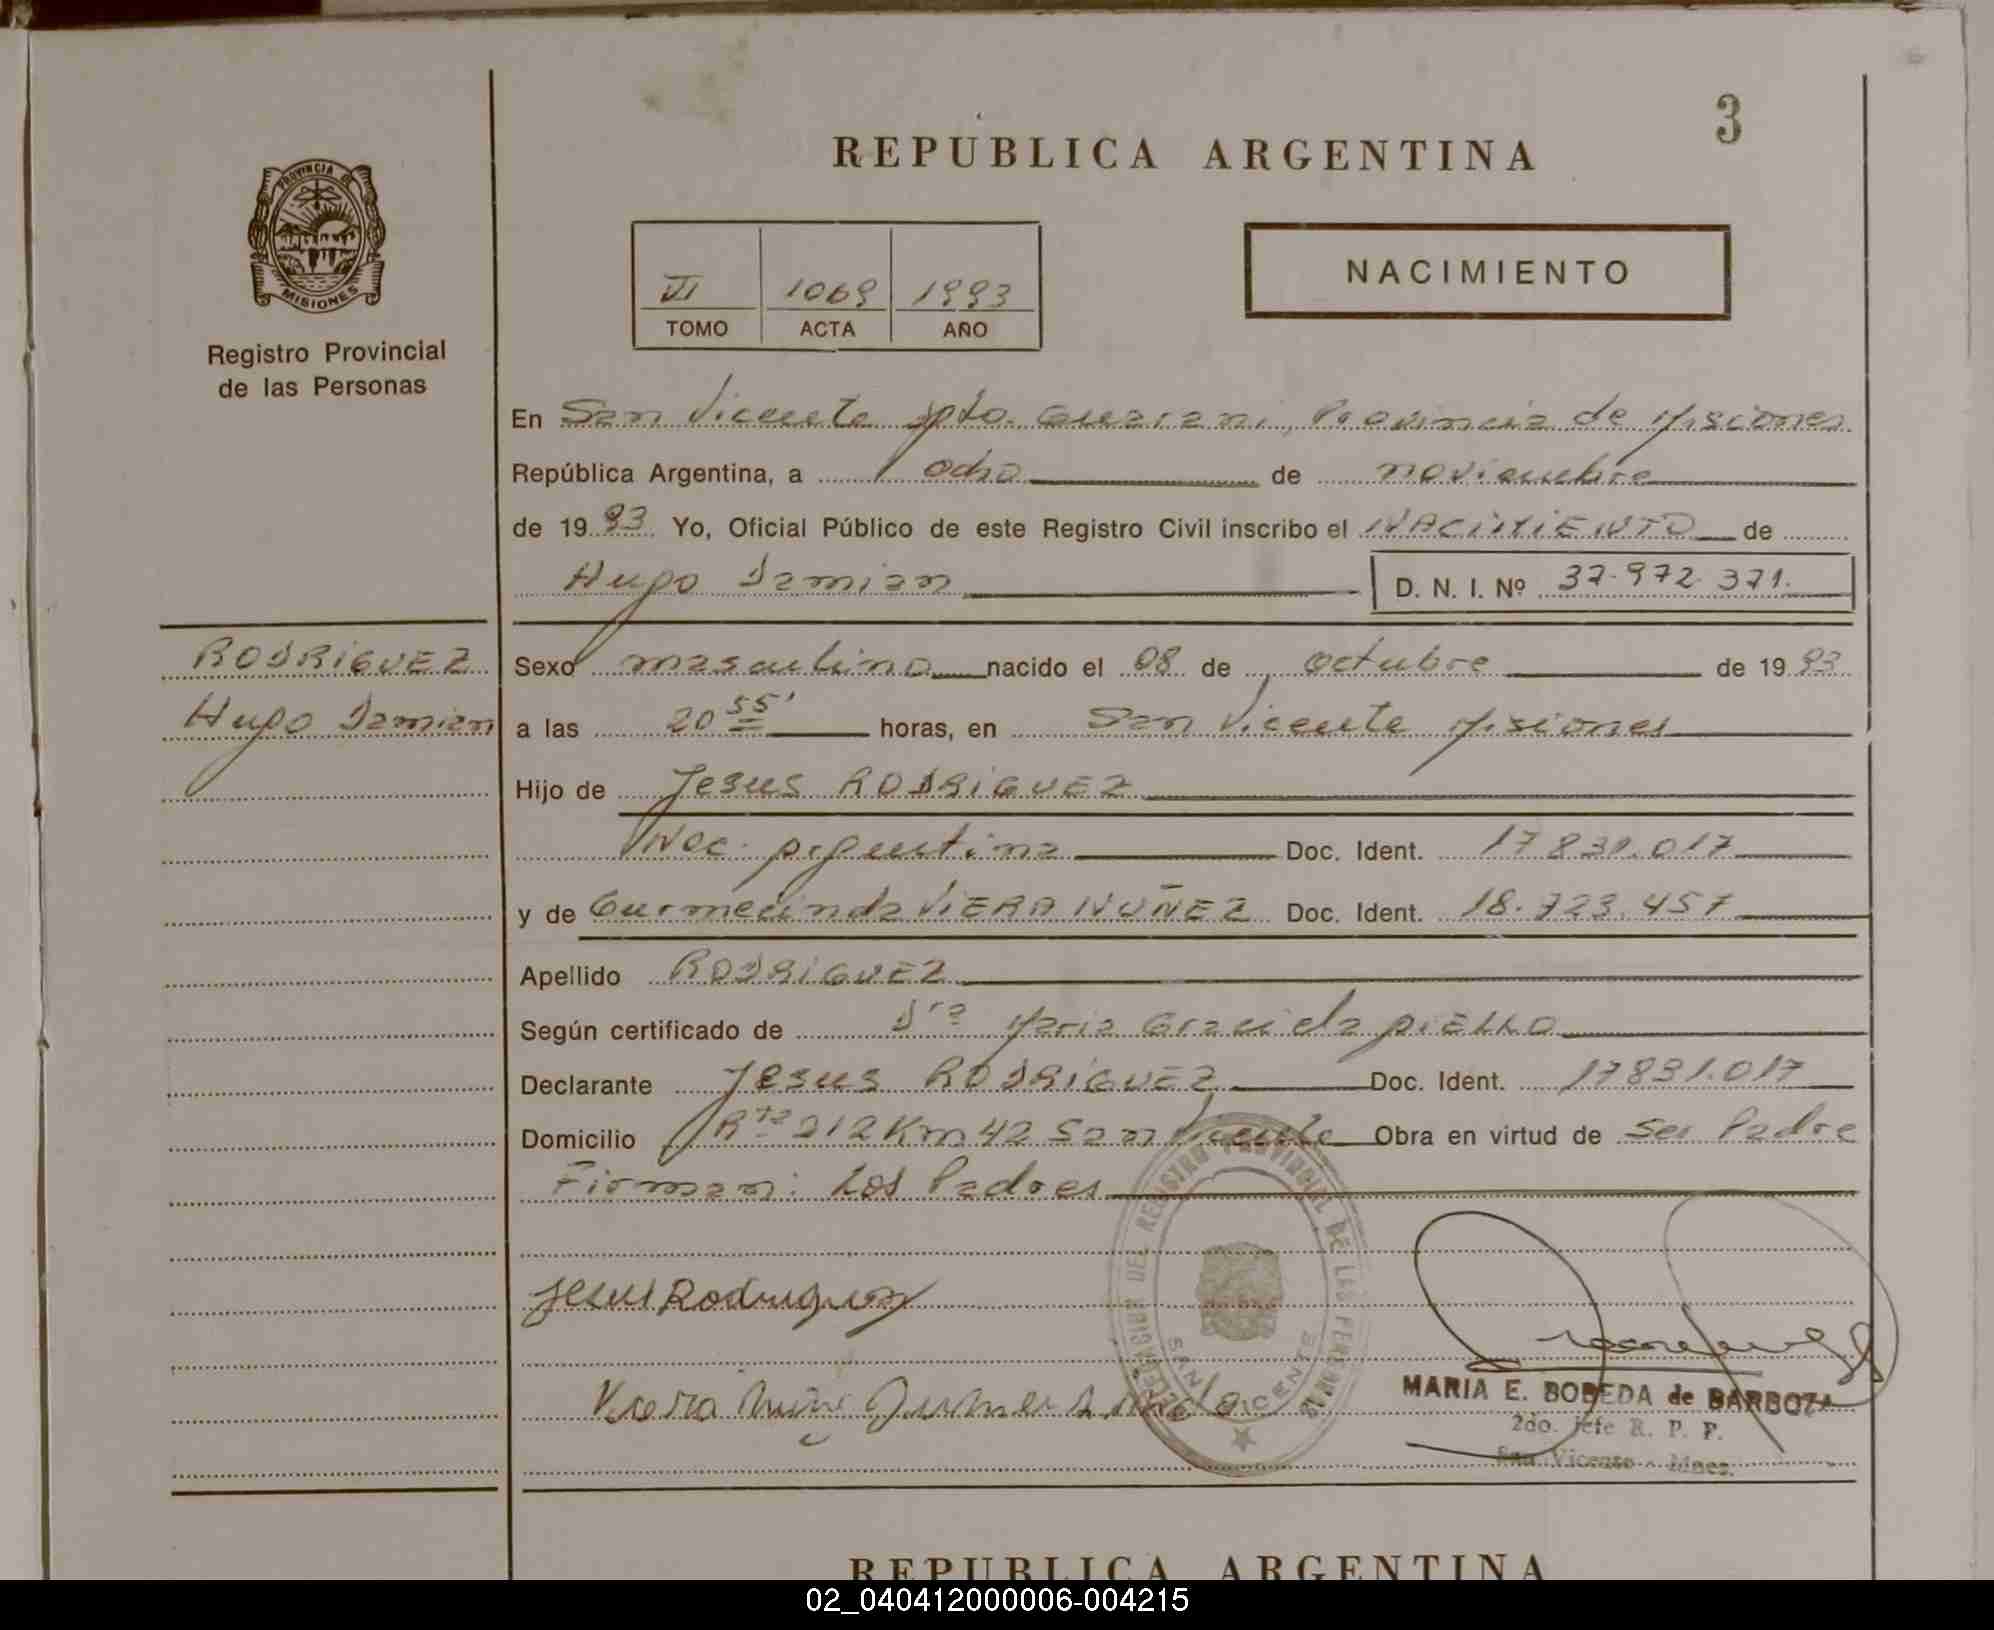 3
REPUBLICA ARGENTINA
PROVINCIA DE
MISIONES
Registro Provincial
de las Personas
VI 1069 1993
TOMO ACTA AÑO
NACIMIENTO
En San Vicente Dpto. Guarani, Provincia de Misiones
República Argentina, a ocho de noviembre
de 1993 Yo, Oficial Público de este Registro Civil inscribo el NACIMIENTO de
Hugo Damian D. N. I. Nº 37.972.371.
RODRIGUEZ
Hugo Damian
Sexo masculino nacido el 08 de octubre de 1993
a las 20 55' horas, en San Vicente Misiones
Hijo de Jesus RODRIGUEZ
Nac. Argentina Doc. Ident. 17831.017
y de Gurmecinda VIERA NUÑEZ Doc. Ident. 18.723.457
Apellido RODRIGUEZ
Según certificado de Dra Maria Graciela
Declarante Jesus RODRIGUEZ Doc. Ident. 17831.017
Domicilio Rta 212 Km 42 San Vicente Obra en virtud de Ser Padre
Firman: Los Padres
Jesus Rodriguez
Viera Nuñe
DELEGACION DEL REGISTRO PROVINCIAL DE LAS PERSONAS
SAN VICENTE
MARIA E. BOBEDA de BARBOZA
2do. Jefe R. P. P.
San Vicente - Mnes.
REPUBLICA ARGENTINA
02_040412000006-004215